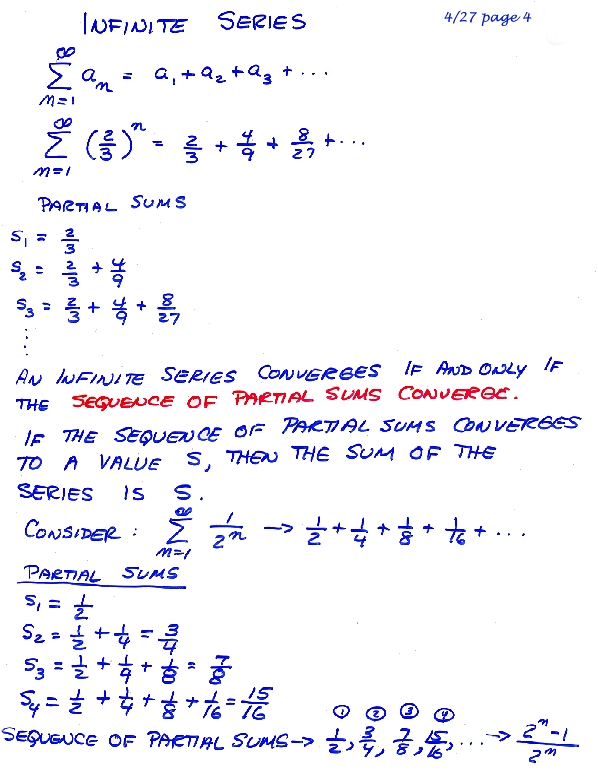 INFINITE SERIES
4/27 page 4
∞ Σ n=1 aₙ = a₁ + a₂ + a₃ + ...
∞ Σ n=1 (2/3)ⁿ = 2/3 + 4/9 + 8/27 + ...
PARTIAL SUMS
S₁ = 2/3
S₂ = 2/3 + 4/9
S₃ = 2/3 + 4/9 + 8/27
⋮
AN INFINITE SERIES CONVERGES IF AND ONLY IF
THE SEQUENCE OF PARTIAL SUMS CONVERGE.
IF THE SEQUENCE OF PARTIAL SUMS CONVERGES
TO A VALUE S, THEN THE SUM OF THE
SERIES IS S.
CONSIDER: ∞ Σ n=1 1/2ⁿ → 1/2 + 1/4 + 1/8 + 1/16 + ...
PARTIAL SUMS
S₁ = 1/2
S₂ = 1/2 + 1/4 = 3/4
S₃ = 1/2 + 1/4 + 1/8 = 7/8
S₄ = 1/2 + 1/4 + 1/8 + 1/16 = 15/16
① ② ③ ④
SEQUENCE OF PARTIAL SUMS → 1/2, 3/4, 7/8, 15/16, ... → (2ⁿ-1)/2ⁿ